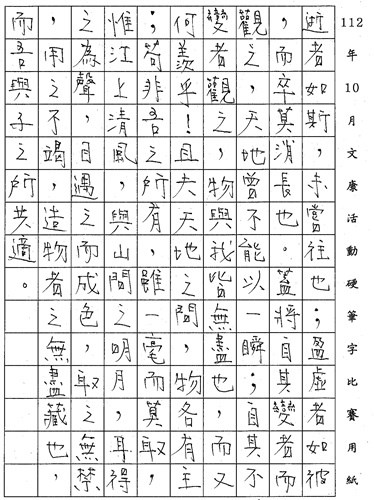 112年10月文康活動硬筆字比賽用紙
逝者如斯，未嘗往也；盈虛者如彼
，而卒莫消長也。蓋將自其變者而
觀之，天地曾不能以一瞬；自其不
變者觀之，物與我皆無盡也，而又
何羨乎！且夫天地之間，物各有主
；苟非吾之所有，雖一毫而莫取，
惟江上清風，與山間之明月，耳得
之為聲，目遇之而成色，取之無禁
，用之不竭，造物者之無盡藏也，
而吾與子之所共適。